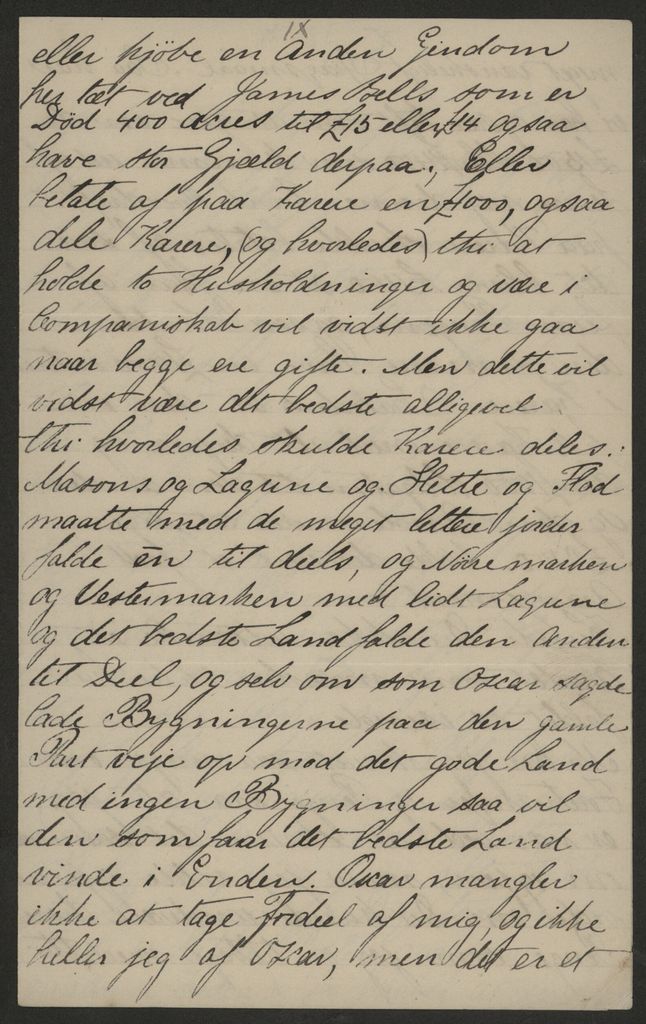 IX
eller kjöbe en Anden Eiendom
her tæt ved James Bells som er
Död 400 acres til £15 eller £14 ogsaa
have stor Gjæld derpaa; Eller
betale af paa Karere en £1000, ogsaa
dele Karere, (og hvorledes) thi at
holde to Husholdninger og være i
Companiskab vil vidst ikke gaa
naar begge ere gifte. Men dette vil
vidst være det bedste alligevel.
thi hvorledes skulde Karere deles:
Masons og Lagune og Slette og Flod
maatte med de meget lettere jorder
falde en til deels, og Nörremarken
og Vestermarken med lidt Lagune
og det bedste Land falde den Anden
til Deel, og selv om som Oscar sagde
lade Bygningerne paa den gamle
Part veje op mod det gode Land
med ingen Bygninger saa vil
den som faar det bedste Land
vinde i Enden. Oscar mangler
ikke at tage Fordeel af mig, og ikke
heller jeg af Oscar, men det er et